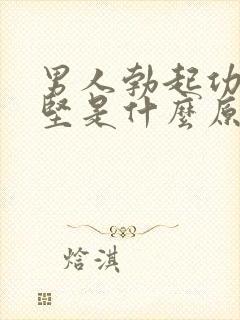 男人勃起功
堅是什麼原
焓淇